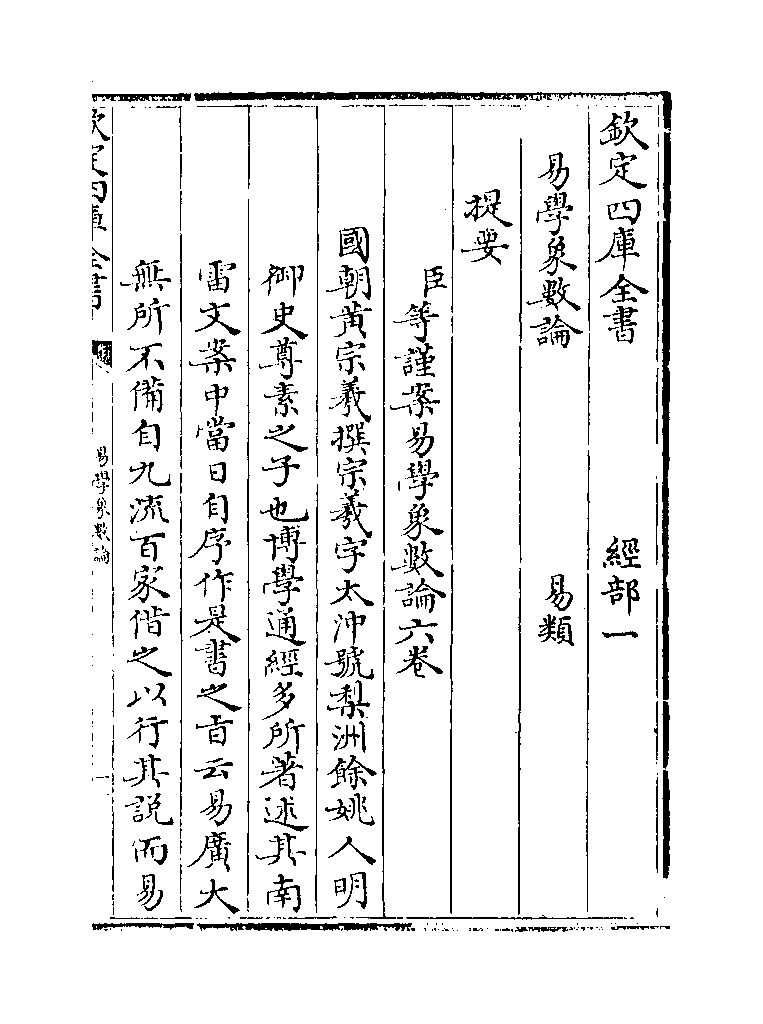 欽定四庫全書　經部一
易學象數論　易類
提要
臣等謹案易學象數論六卷
國朝黃宗羲撰宗羲字太沖號梨洲餘姚人明
御史尊素之子也博學通經多所著述其南
雷文案中當日自序作是書之旨云易廣大
無所不備自九流百家偕之以行其説而易
欽定四庫全書
易學象數論
一